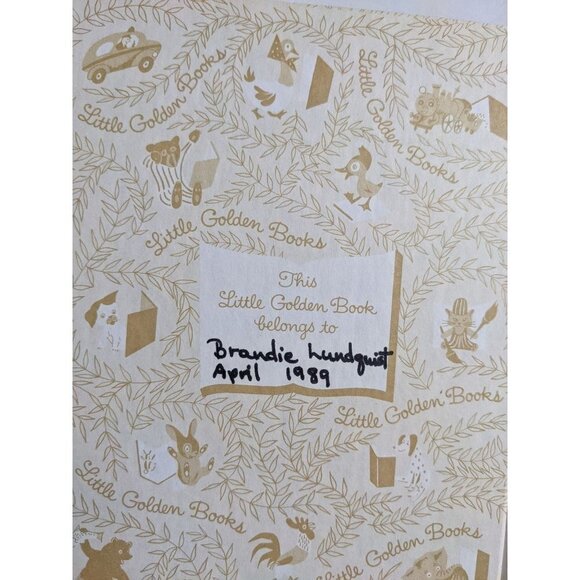 Little Golden Books
Little Golden Books
Little Golden Books
This
Little Golden Book
belongs to
Brandie Lundquist
April 1989
Little Golden Books
Little Golden Books
Little Golden Books